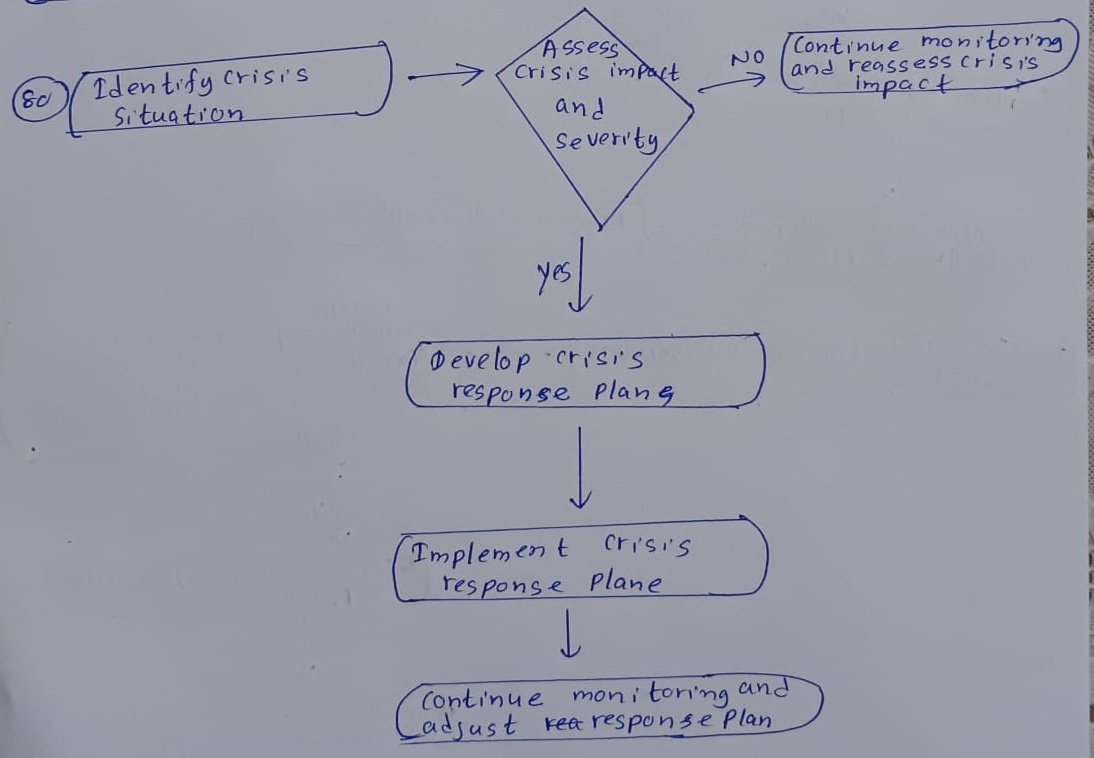 80
Identify crisis
situation
Assess
crisis impact
and
severity
NO
Continue monitoring
and reassess crisis
impact
yes
Develop crisis
response plans
Implement crisis
response plane
continue monitoring and
adjust response plan